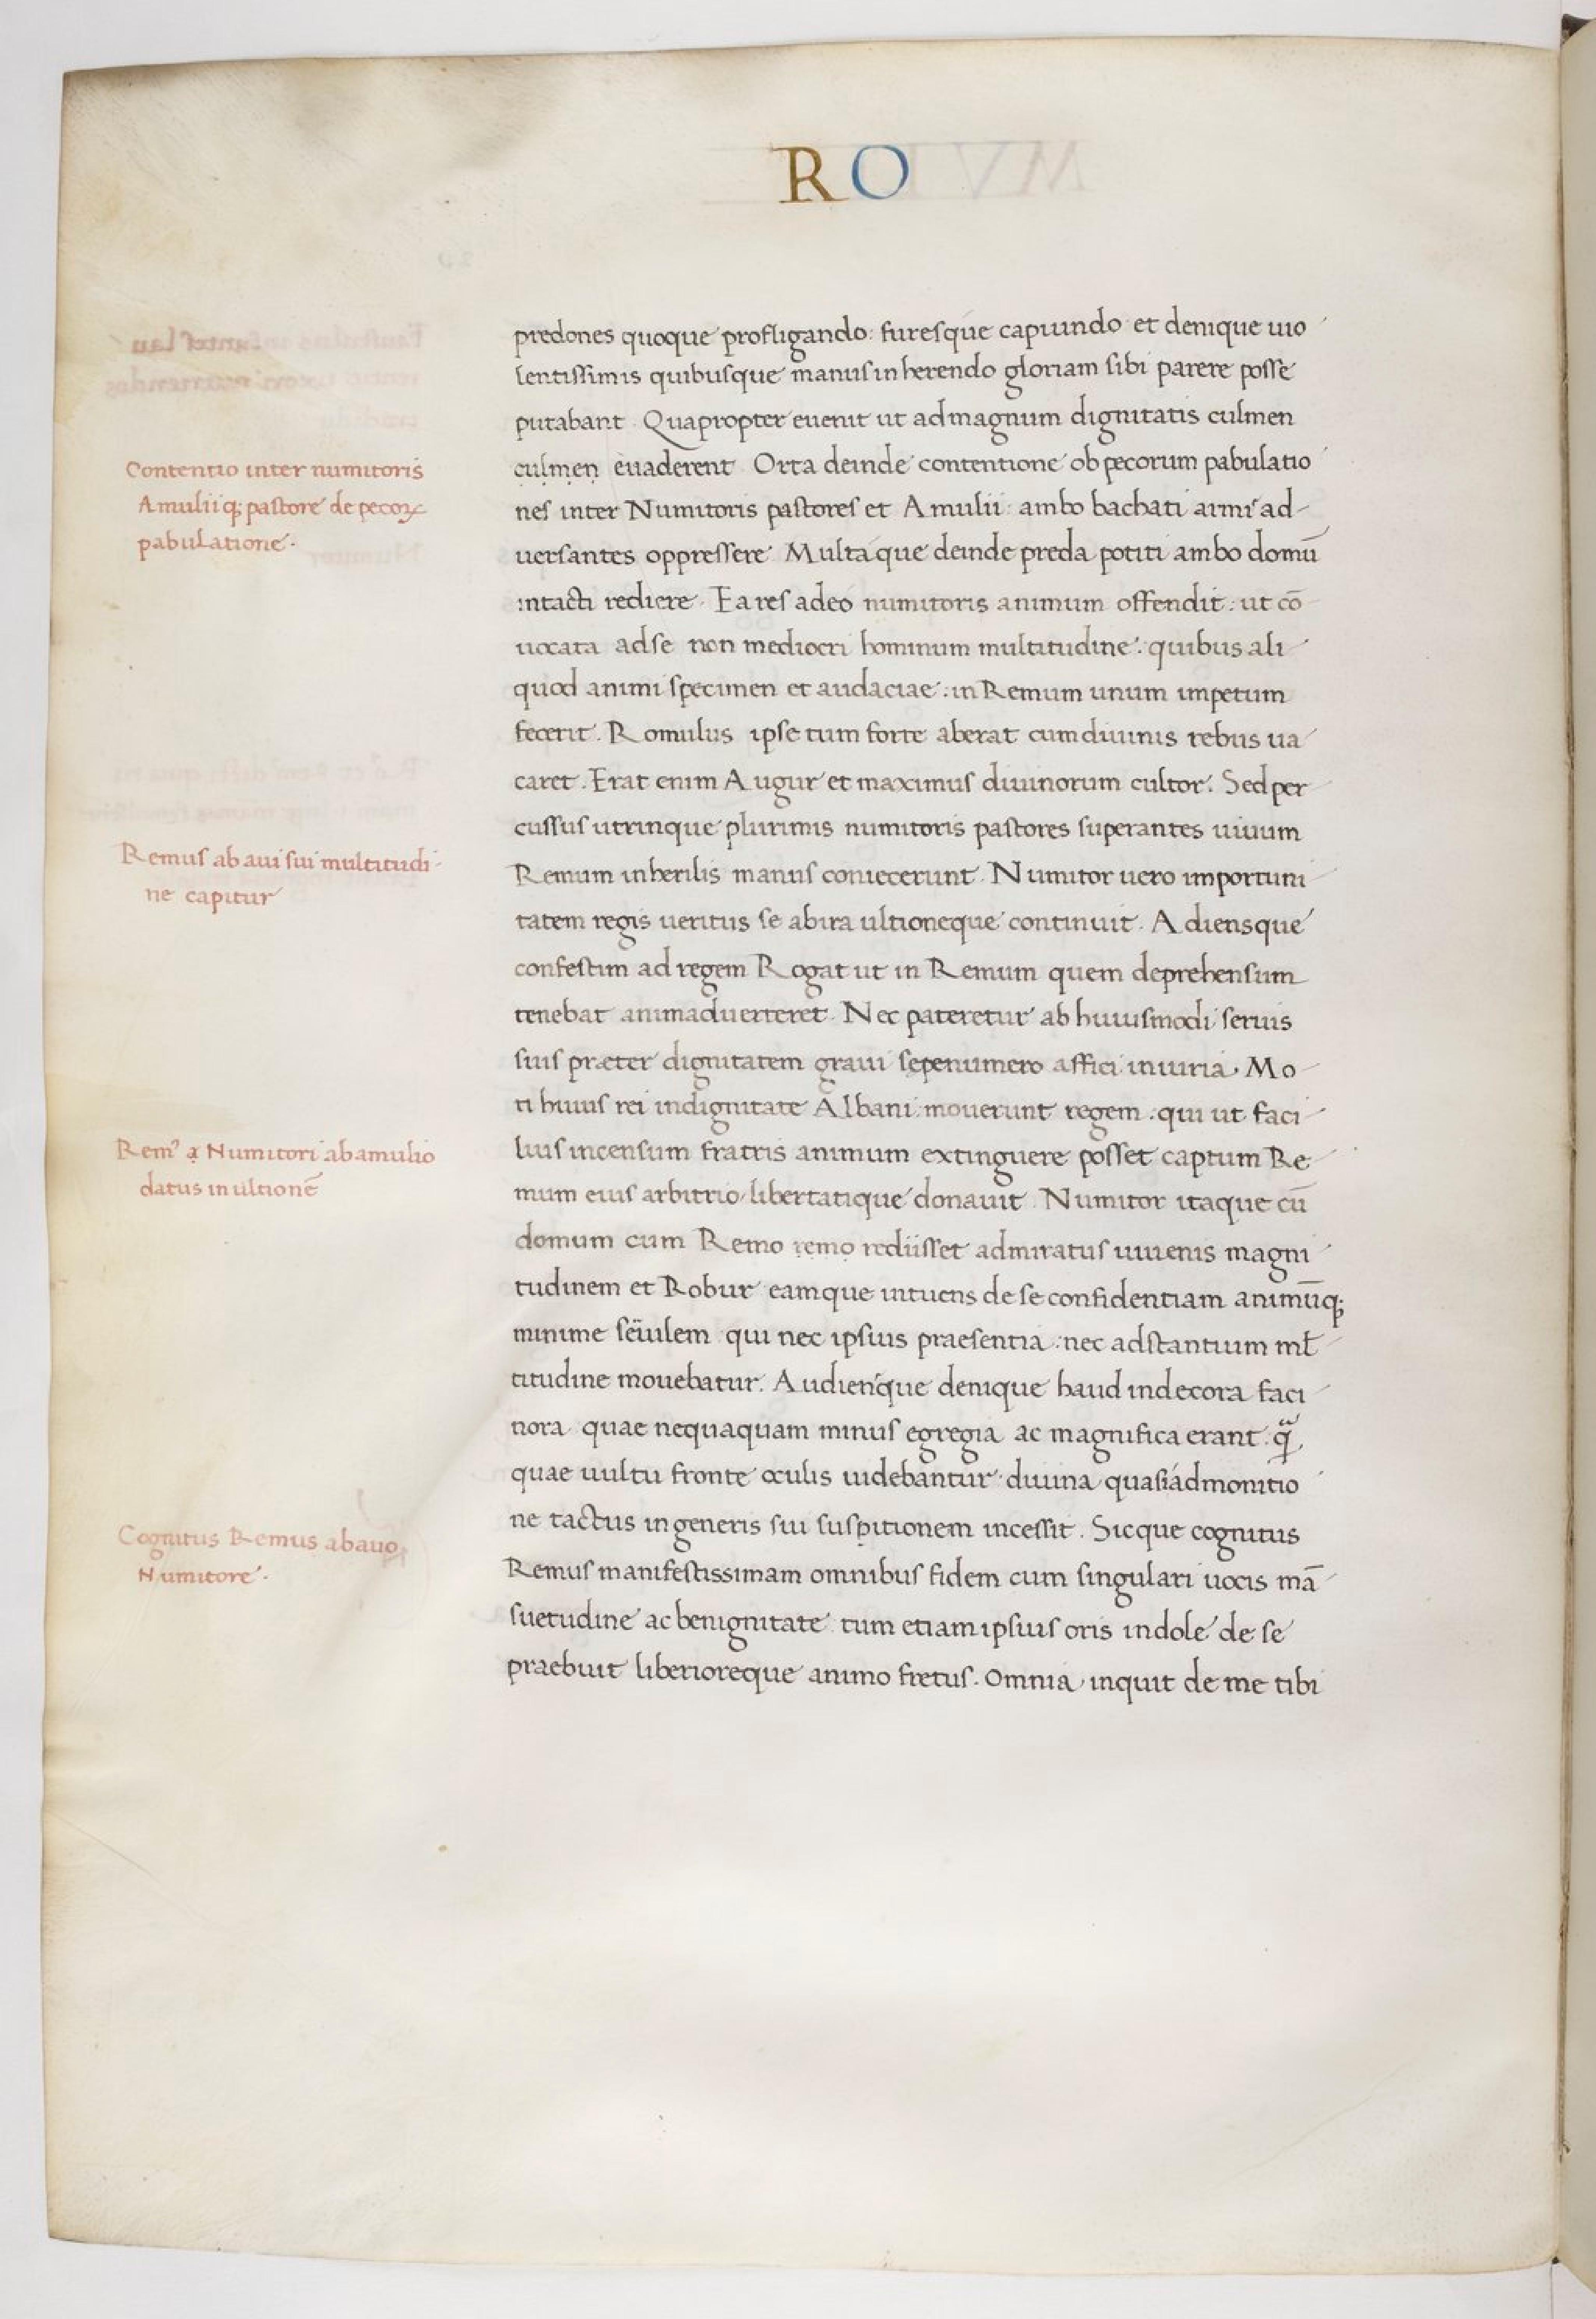 RO
predones quoque profligando: furesque capiundo et denique uio
lentissimis quibusque manus inherendo gloriam sibi parere posse
putabant. Quapropter euenit ut ad magnum dignitatis culmen
culmen euaderent. Orta deinde contentione ob pecorum pabulatio
nes inter Numitoris pastores et Amulii: ambo bachati armis ad-
uersantes oppressere. Multaque deinde preda potiti ambo domū
intacti rediere. Ea res adeo numitoris animum offendit: ut cō
uocata ad se non mediocri hominum multitudine: quibus ali
quod animi specimen et audaciae: in Remum unum impetum
fecerit. Romulus ipse tum forte aberat cum diuinis rebus ua
caret. Erat enim Augur et maximus diuinorum cultor. Sed per
cussus utrinque plurimis numitoris pastores superantes uiuum
Remum in herilis manus coniecerunt. Numitor uero importuni
tatem regis ueritus se ab ira ultioneque continuit. Adiensque
confestim ad regem Rogat ut in Remum quem deprehensum
tenebat animaduerteret. Nec pateretur ab huiusmodi seruis
suis præter dignitatem graui sepenumero affici iniuria. Mo
ti huius rei indignitate Albani: mouerunt regem: qui ut faci
lius incensum fratris animum extinguere posset captum Re
mum eius arbitrio libertatique donauit. Numitor itaque cū
domum cum Remo remo rediisset admiratus iuuenis magni
tudinem et Robur eamque intuens de se confidentiam animūq;
minime seuilem qui nec ipsius praesentia: nec adstantium ml̄
titudine mouebatur. Audiensque denique haud indecora faci
nora quae nequaquam minus egregia ac magnifica erant. qᷓ
quae uultu fronte oculis uidebantur: diuina quasi admonitio
ne tactus in generis sui suspitionem incessit. Sicque cognitus
Remus manifestissimam omnibus fidem cum singulari uocis mā
suetudine ac benignitate tum etiam ipsius oris indole de se
praebuit liberioreque animo fretus. Omnia inquit de me tibi
Contentio inter numitoris
Amuliiq; pastore de pecoꝝ
pabulatione.
Remus ab aui sui multitudi-
ne capitur
Rem⁹ a Numitori ab amulio
datus in ultionē
Cognitus Remus ab auo
Numitore.